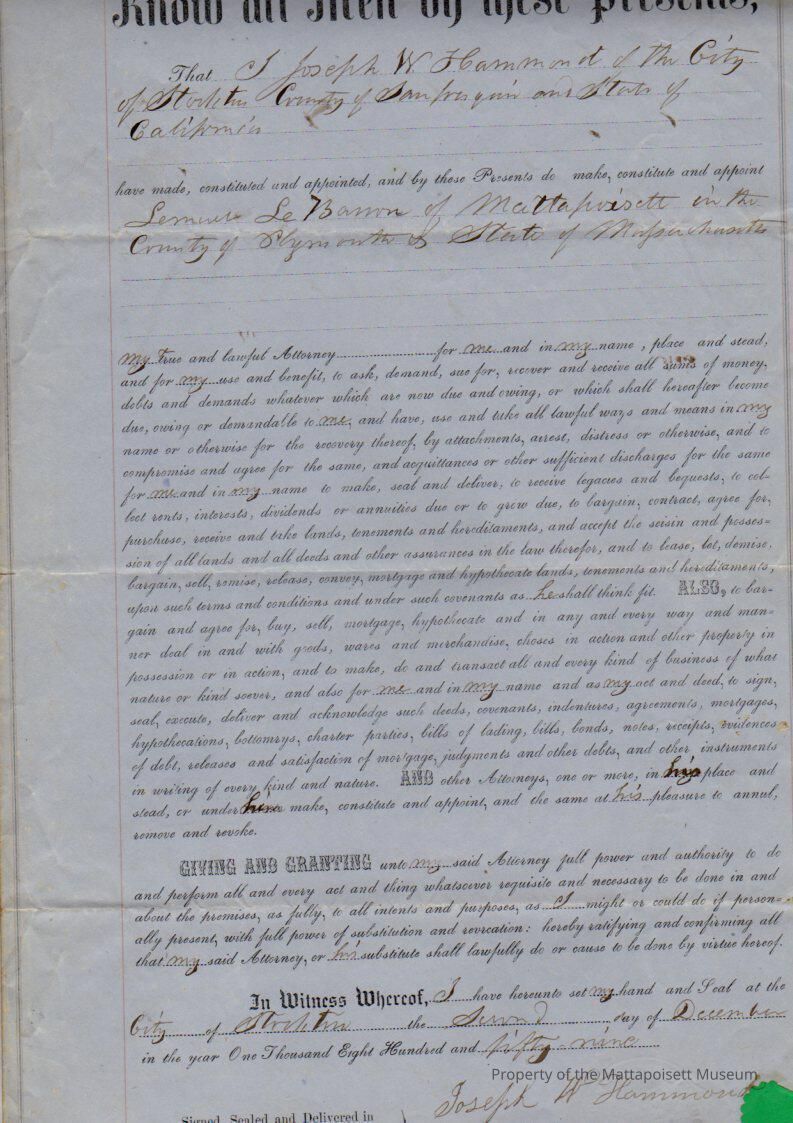 Know all Men by these presents,
That I Joseph W Hammond of the City
of Stockton County of San Joaquin and State of
California
have made, constituted and appointed, and by these Presents do make, constitute and appoint
Lemuel Le Baron of Mattapoisett in the
County of Plymouth & State of Massachusetts
my true and lawful Attorney for me and in my name, place and stead,
and for my use and benefit, to ask, demand, sue for, recover and receive all sums of money,
debts and demands whatever which are now due and owing, or which shall hereafter become
due, owing or demandable to me, and have, use and take all lawful ways and means in my
name or otherwise for the recovery thereof, by attachments, arrest, distress or otherwise, and to
compromise and agree for the same, and acquittances or other sufficient discharges for the same
for me and in my name to make, seal and deliver, to receive legacies and bequests, to col-
lect rents, interests, dividends or annuities due or to grow due, to bargain, contract, agree for,
purchase, receive and take lands, tenements and hereditaments, and accept the seisin and posses=
sion of all lands and all deeds and other assurances in the law therefor, and to lease, let, demise,
bargain, sell, remise, release, convey, mortgage and hypothecate lands, tenements and hereditaments,
upon such terms and conditions and under such covenants as he shall think fit. ALSO, to bar-
gain and agree for, buy, sell, mortgage, hypothecate and in any and every way and man-
ner deal in and with goods, wares and merchandise, choses in action and other property in
possession or in action, and to make, do and transact all and every kind of business of what
nature or kind soever, and also for me and in my name and as my act and deed, to sign,
seal, execute, deliver and acknowledge such deeds, covenants, indentures, agreements, mortgages,
hypothecations, bottomrys, charter parties, bills of lading, bills, bonds, notes, receipts, evidences
of debt, releases and satisfaction of mortgage, judgments and other debts, and other instruments
in writing of every kind and nature. AND other Attorneys, one or more, in his place and
stead, or under him make, constitute and appoint, and the same at his pleasure to annul,
remove and revoke.
GIVING AND GRANTING unto my said Attorney full power and authority to do
and perform all and every act and thing whatsoever requisite and necessary to be done in and
about the premises, as fully, to all intents and purposes, as I might or could do if person=
ally present, with full power of substitution and revocation: hereby ratifying and confirming all
that my said Attorney, or his substitute shall lawfully do or cause to be done by virtue hereof.
In Witness Whereof, I have hereunto set my hand and Seal at the
City of Stockton the Second day of December
in the year One Thousand Eight Hundred and fifty-nine
Property of the Mattapoisett Museum
Joseph W Hammond
Signed, Sealed and Delivered in